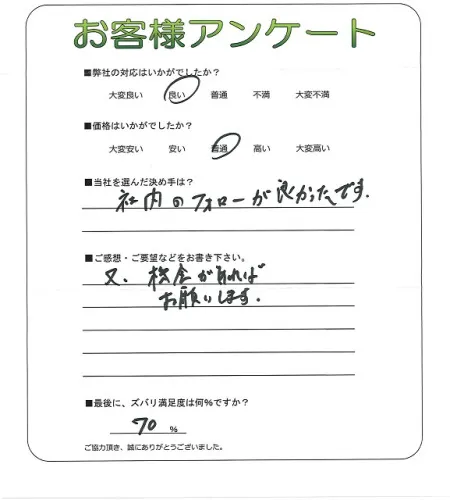 お客様アンケート
■弊社の対応はいかがでしたか？
大変良い 良い 普通 不満 大変不満
■価格はいかがでしたか？
大変安い 安い 普通 高い 大変高い
■当社を選んだ決め手は？
社内のフォローが良かったです.
■ご感想・ご要望などをお書き下さい。
又、機会があれば
お願いします.
■最後に、ズバリ満足度は何％ですか？
70 ％
ご協力頂き、誠にありがとうございました。